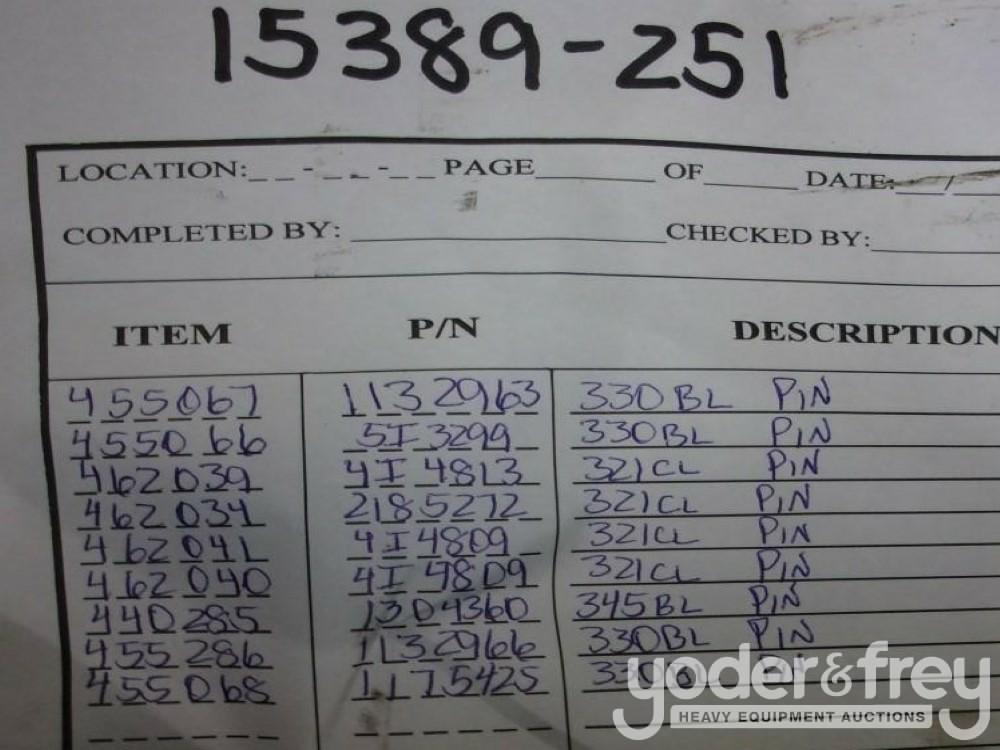 15389-251
LOCATION:__-__-__ PAGE______ OF_____ DATE:__/__
COMPLETED BY: ____________ CHECKED BY:______
ITEM P/N DESCRIPTION
455067 1132963 330BL PIN
455066 5I3299 330BL PIN
462039 4I4813 321CL PIN
462034 2185272 321CL PIN
462041 4I4809 321CL PIN
462040 4I4809 321CL PIN
440285 1304360 345BL PIN
455286 1132966 330BL PIN
455068 1175425 330BL PIN
yoder&frey
HEAVY EQUIPMENT AUCTIONS